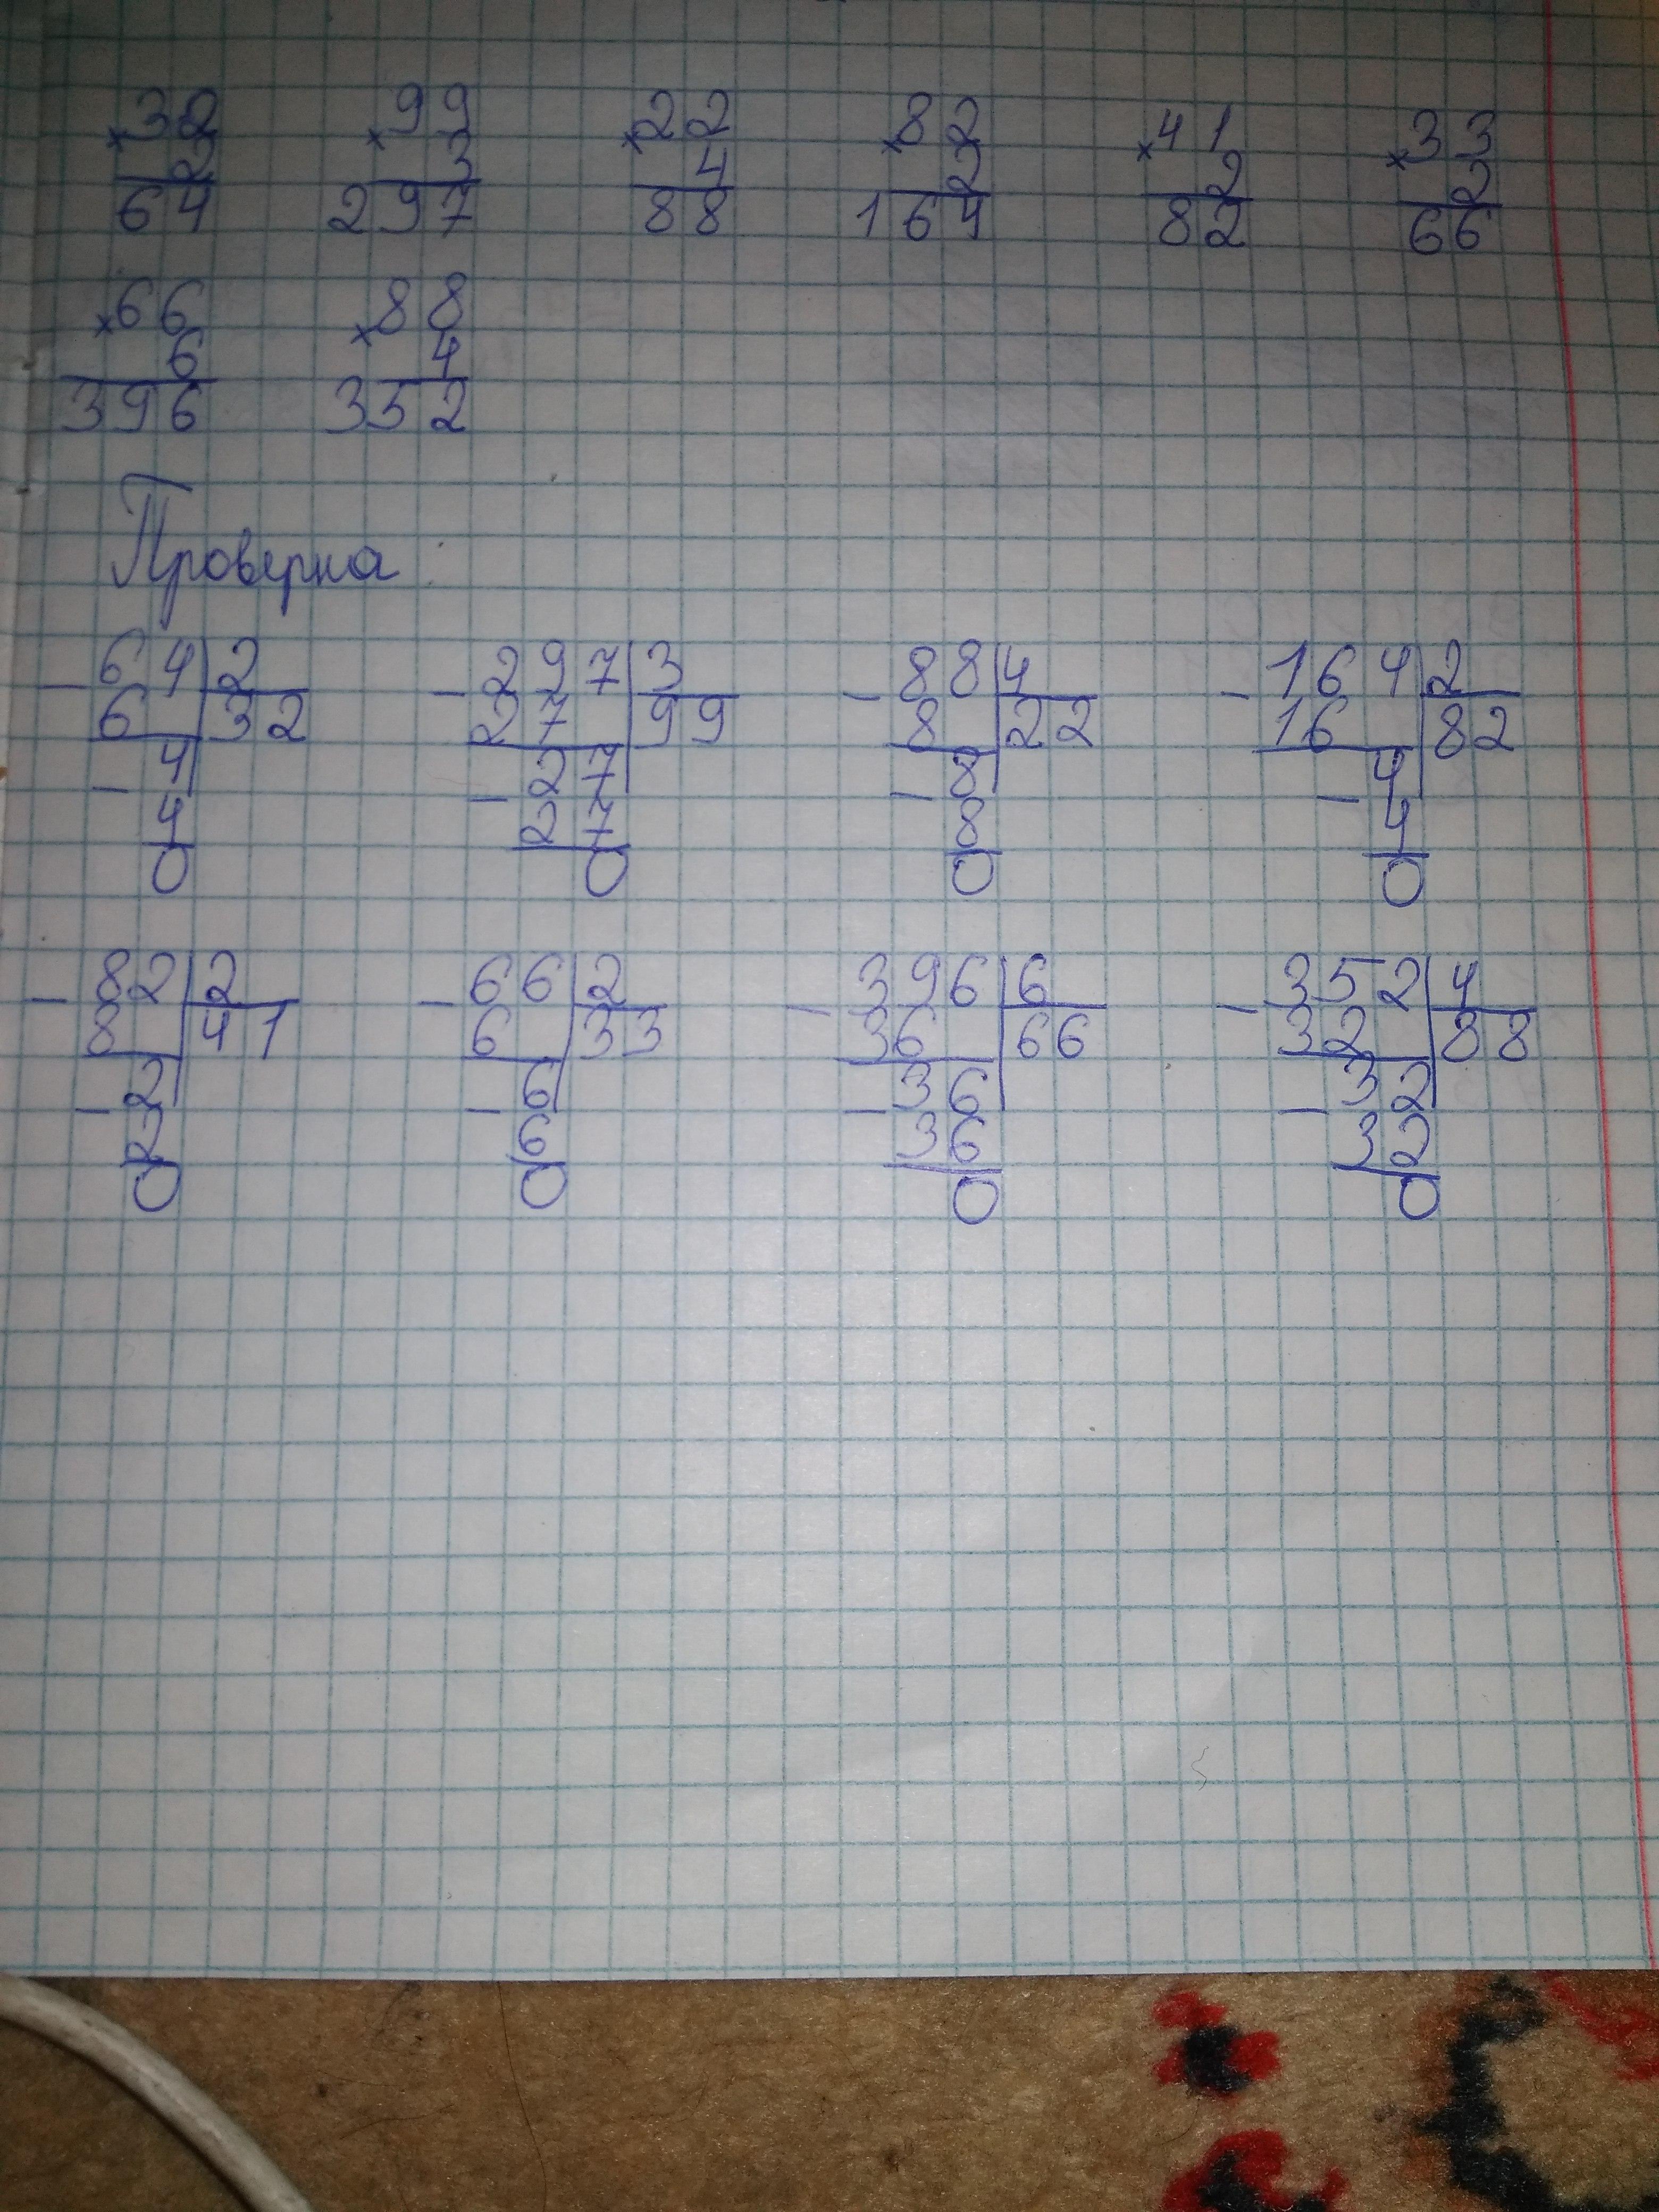 ×32 ×99 ×22 ×82 ×41 ×33
2 3 4 2 2 2
64 297 88 164 82 66
×66 ×88
6 4
396 352
Проверка
−64|2 −297|3 −88|4 −164|2
6 32 27 99 8 22 16 82
−4 −27 −8 −4
4 27 8 4
0 0 0 0
−82|2 −66|2 −396|6 −352|4
8 41 6 33 36 66 32 88
−2 −6 −36 −32
2 6 36 32
0 0 0 0